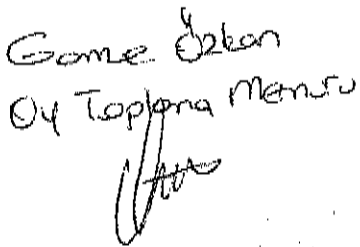 Gamze Özkan
Oy Toplama Memuru